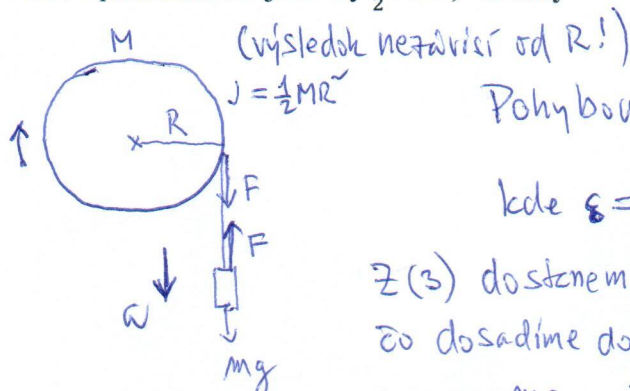 ½
M
(výsledok nezávisí od R!)
J = ½MR²
Pohybov
R
F
kde ε =
F
Z(3) dostanem
a
čo dosadíme do
mg